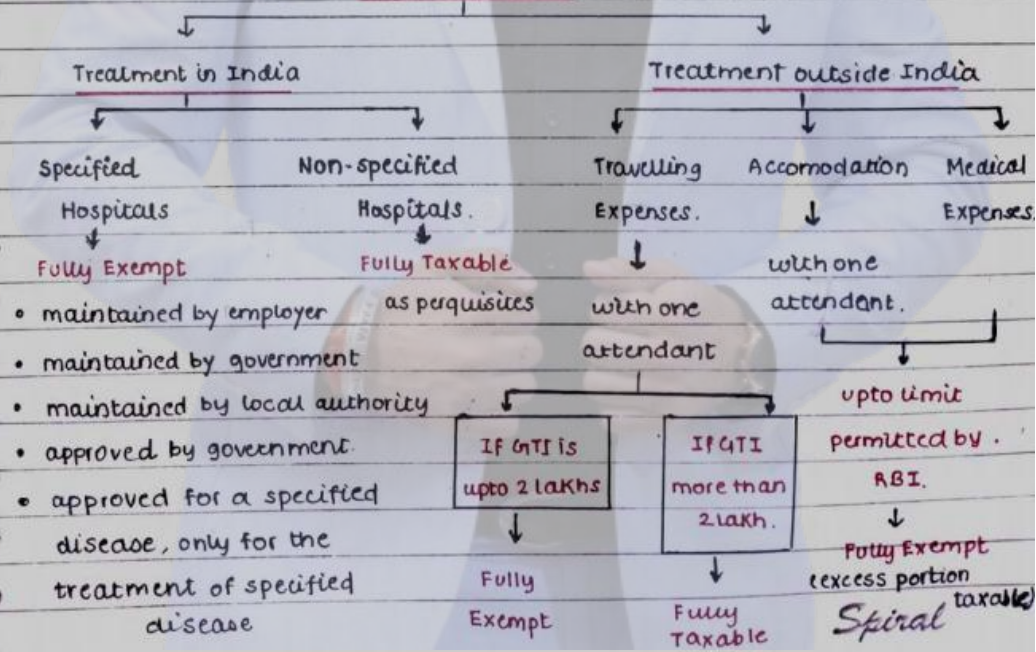 Treatment in India
Treatment outside India
Specified
Hospitals
Fully Exempt
• maintained by employer
• maintained by government
• maintained by local authority
• approved by government.
• approved for a specified
disease, only for the
treatment of specified
disease
Non-specified
Hospitals.
Fully Taxable
as perquisites
Travelling
Expenses.
with one
attendant
If GTI is
upto 2 lakhs
Fully
Exempt
If GTI
more than
2 lakh.
Fully
Taxable
Accomodation
with one
attendant.
Medical
Expenses.
upto limit
permitted by.
RBI.
Fully Exempt
(excess portion
taxable)
Spiral